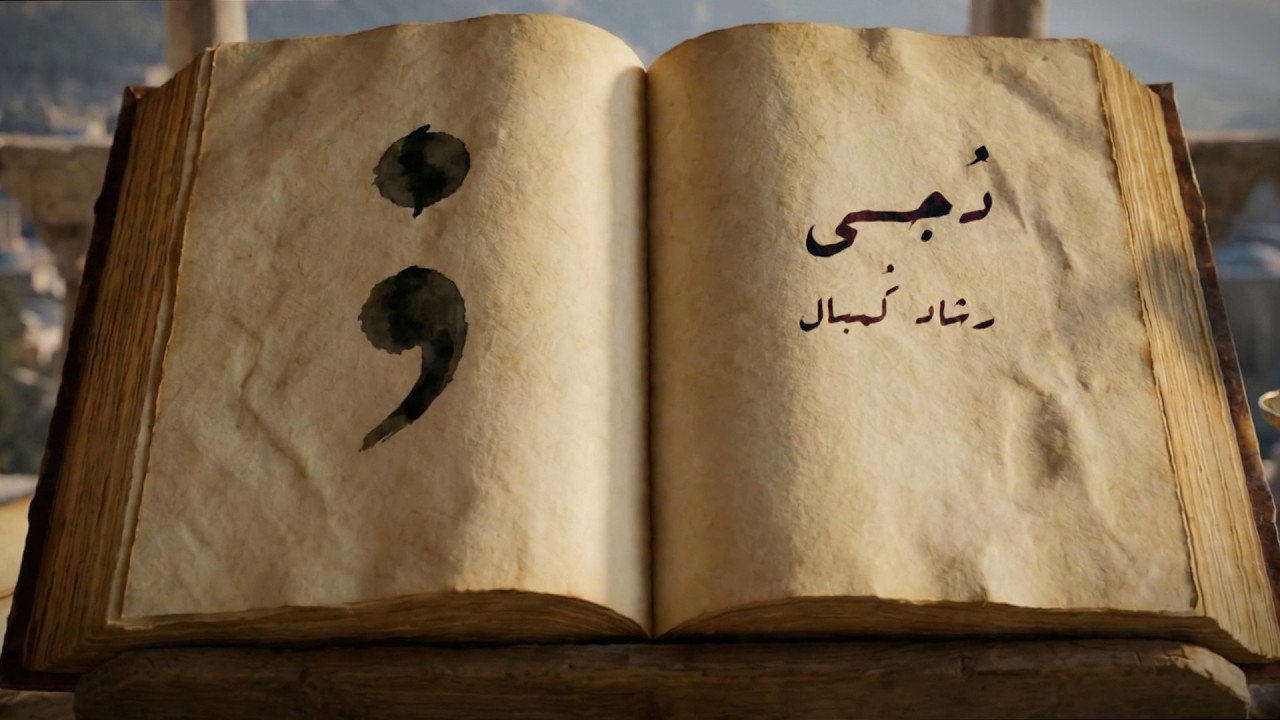 ;
دُجــى
رشاد كُمبال